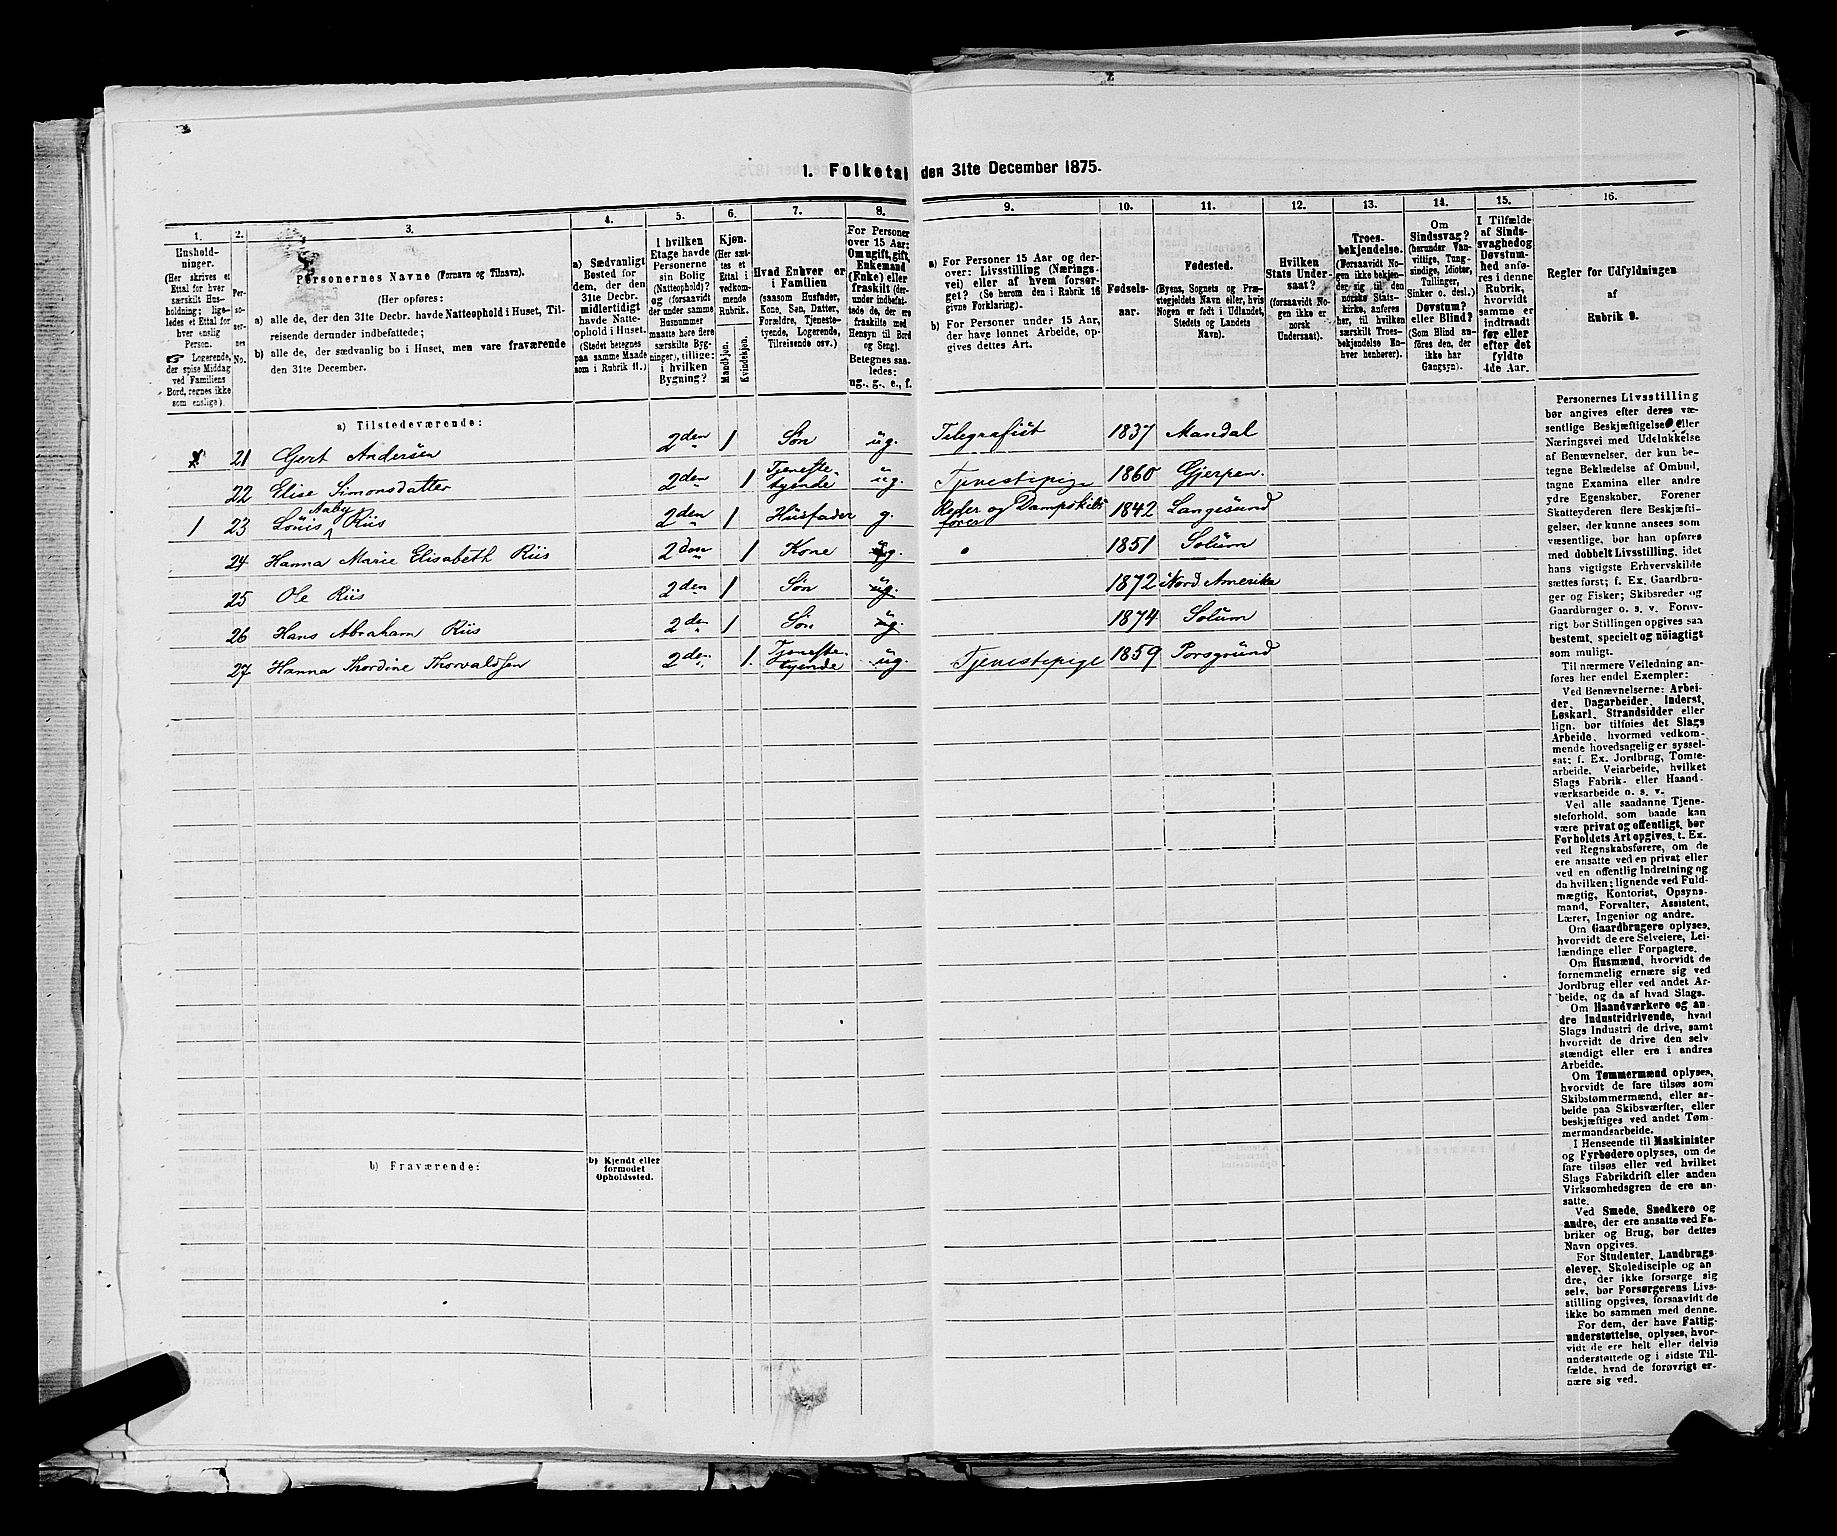 1. Folketal den 31te December 1875.
1.
Hushold-
ninger.
(Her skrives et
Ettal for hver
særskilt Hus-
holdning; lige-
ledes et Ettal for
hver enslig
Person.
Logerende,
der spise Middag
ved Familiens
Bord, regnes ikke
som enslige).
2.
Per-
so-
ner-
nes
No.
3.
Personernes Navne (Fornavn og Tilnavn).
(Her opføres:
a) alle de, der den 31te Decbr. havde Natteophold i Huset, Til-
reisende derunder indbefattede;
b) alle de, der sædvanlig bo i Huset, men vare fraværende
den 31te December.
4.
a) Sædvanligt
Bosted for
dem, der den
31te Decbr.
midlertidigt
havde Natte-
ophold i Huset.
(Stedet betegnes
paa samme Maade
som i Rubrik 11.)
5.
I hvilken
Etage havde
Personerne
sin Bolig
(Natteophold)?
og (forsaavidt
der under samme
Husnummer
maatte høre flere
særskilte Byg-
ninger), tillige:
i hvilken
Bygning?
6.
Kjøn.
(Her sæt-
tes et
Ettal i
vedkom-
mende
Rubrik.
Mandkjøn.
Kvindekjøn.
7.
Hvad Enhver er
i Familien
(saasom Husfader,
Kone, Søn, Datter,
Forældre, Tjeneste-
tyende, Logerende,
Tilreisende osv.)
8.
For Personer
over 15 Aar:
Om ugift, gift,
Enkemand
(Enke) eller
fraskilt (der-
under indbefat-
tede de, der ere
fraskilte med
Hensyn til Bord
og Seng).
Betegnes saa-
ledes:
ug., g., e., f.
9.
a) For Personer 15 Aar og der-
over: Livsstilling (Nærings-
vei) eller af hvem forsør-
get? (Se herom den i Rubrik 16
givne Forklaring).
b) For Personer under 15 Aar,
der have lønnet Arbeide, op-
gives dettes Art.
10.
Fødsels-
aar.
11.
Fødested.
(Byens, Sognets og Præ-
stegjeldets Navn eller, hvis
Nogen er født i Udlandet,
Stedets og Landets
Navn).
12.
Hvilken
Stats Under-
saat?
(forsaavidt No-
gen ikke er
norsk
Undersaat).
13.
Troes-
bekjendelse.
(Forsaavidt No-
gen ikke bekjen-
der sig til den
norske Stats-
kirke, anføres
her, til hvilken
særskilt Troes-
bekjendelse En-
hver henhører).
14.
Om
Sindssvag?
(herunder Van-
vittige, Tung-
sindige, Idioter,
Tullinger,
Sinker o. desl.)
Døvstum?
eller Blind?
(Som Blind an-
føres den, der
ikke har
Gangsyn).
15.
I Tilfælde
af Sinds-
svaghed og
Døvstum-
hed anfø-
res i denne
Rubrik,
hvorvidt
samme er
indtraadt
før eller
efter det
fyldte
4de Aar.
16.
Regler for Udfyldningen
af
Rubrik 9.
a) Tilstedeværende:
21 Gert Andersen 2den 1 Søn ug. Telegrafist 1837 Mandal
22 Elise Simonsdatter 2den 1 Tjeneste-tyende ug. Tjenestepige 1860 Gjerpen.
1 23 Louis Aaby Riis 2den 1 Husfader g. Reder og Dampskibsfører 1842 Langesund
24 Hanna Marie Elisabeth Riis 2den 1 Kone g. 1851 Solum
25 Ole Riis 2den 1 Søn ug. 1872 Nord Amerika
26 Hans Abraham Riis 2den 1 Søn ug. 1874 Solum
27 Hanna Thordine Thorvaldsen 2den 1. Tjeneste-tyende ug. Tjenestepige 1859 Porsgrund
b) Fraværende:
b) Kjendt eller
formodet
Opholdssted.
Personernes Livsstilling
bør angives efter deres væ-
sentlige Beskjæftigelse eller
Næringsvei med Udelukkelse
af Benævnelser, der kun be-
tegne Beklædelse af Ombud,
tagne Examina eller andre
ydre Egenskaber. Forener
Skatteyderen flere Beskjæfti-
gelser, der kunne ansees som
væsentlige, bør han opføres
med dobbelt Livsstilling, idet
hans vigtigste Erhvervskilde
sættes først; f. Ex. Gaardbru-
ger og Fisker; Skibsreder og
Gaardbruger o. s. v. Forøv-
rigt bør Stillingen opgives saa
bestemt, specielt og nøiagtigt
som muligt.
Til nærmere Veiledning an-
føres her endel Exempler:
Ved Benævnelserne: Arbei-
der, Dagarbeider, Inderst,
Løskarl, Strandsidder eller
lign. bør tilføies det Slags
Arbeide, hvormed vedkom-
mende hovedsagelig er syssel-
sat; f. Ex. Jordbrug, Tomte-
arbeide, Veiarbeide, hvilket
Slags Fabrik- eller Haand-
værksarbeide o. s. v.
Ved alle saadanne Tjene-
steforhold, som baade kan
være privat og offentligt, bør
Forholdets Art opgives, t. Ex.
ved Regnskabsførere, om de
ere ansatte ved en privat eller
ved en offentlig Indretning og
da hvilken; lignende ved Fuld-
mægtig, Kontorist, Opsyns-
mand, Forvalter, Assistent,
Lærer, Ingeniør og andre.
Om Gaardbrugere oplyses,
hvorvidt de ere Selveiere, Lei-
lændinge eller Forpagtere.
Om Husmænd, hvorvidt de
fornemmelig ernære sig ved
Jordbrug eller ved andet Ar-
beide, og da af hvad Slags.
Om Haandværkere og an-
dre Industridrivende, hvad
Slags Industri de drive, samt
hvorvidt de drive den selv-
stændigt eller ere i andres
Arbeide.
Om Tømmermænd oplyses,
hvorvidt de fare tilsøs som
Skibstømmermænd, eller ar-
beide paa Skibsværfter, eller
beskjæftiges ved andet Tøm-
mermandsarbeide.
I Henseende til Maskinister
og Fyrbødere oplyses, om de
fare tilsøs eller ved hvilket
Slags Fabrikdrift eller anden
Virksomhedsgren de ere an-
satte.
Ved Smede, Snedkere og
andre, der ere ansatte ved Fa-
briker og Brug, bør dettes
Navn opgives.
For Studenter, Landbrugs-
elever, Skoledisciple og an-
dre, der ikke forsørge sig
selv, bør Forsørgerens Livs-
stilling opgives, forsaavidt de
ikke bo sammen med denne.
For dem, der have Fattig-
understøttelse, oplyses, hvor-
vidt de ere helt eller delvis
understøttede og i sidste Til-
fælde, hvad de forøvrigt er-
nære sig ved.